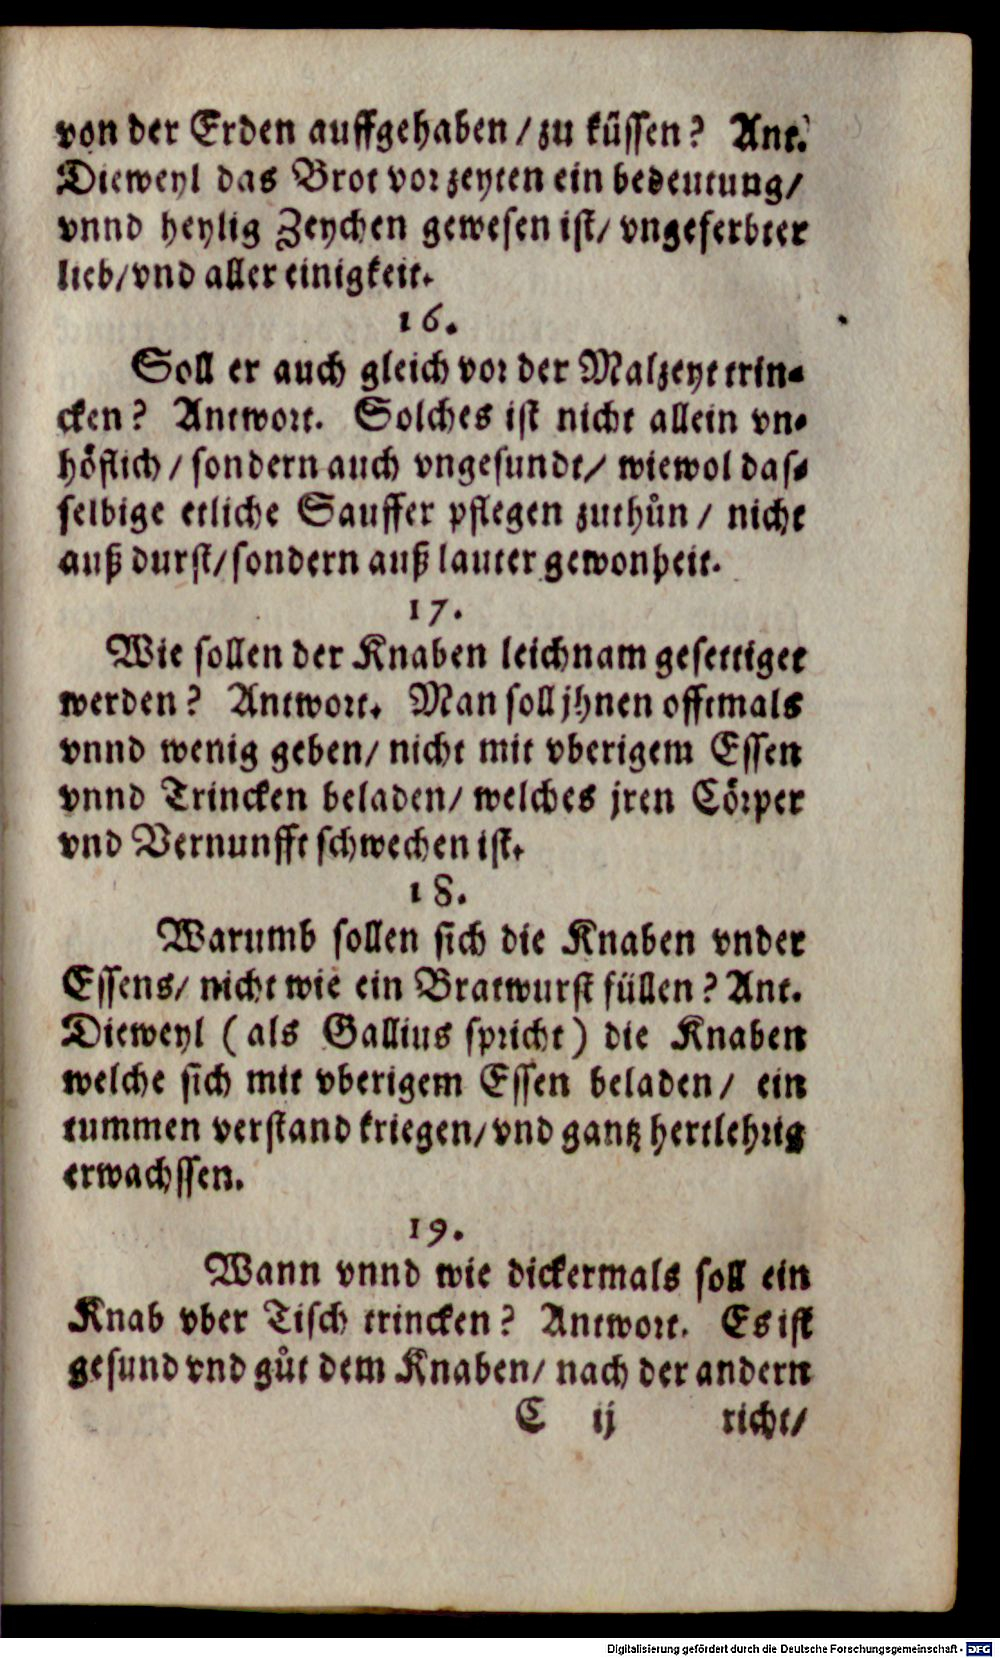 von der Erden auffgehaben / zu küssen? Ant.
Dieweyl das Brot vor zeyten ein bedeutung /
vnnd heylig Zeychen gewesen ist / vngeferbter
lieb / vnd aller einigkeit.
16.
Soll er auch gleich vor der Malzeyt trin-
cken? Antwort. Solches ist nicht allein vn-
höflich / sondern auch vngesundt / wiewol das-
selbige etliche Sauffer pflegen zuthůn / nicht
auß durst / sondern auß lauter gewonheit.
17.
Wie sollen der Knaben leichnam gesettiget
werden? Antwort. Man soll jhnen offtmals
vnnd wenig geben / nicht mit vberigem Essen
vnnd Trincken beladen / welches jren Cörper
vnd Vernunfft schwechen ist.
18.
Warumb sollen sich die Knaben vnder
Essens / nicht wie ein Bratwurst füllen? Ant.
Dieweyl ( als Gallius spricht ) die Knaben
welche sich mit vberigem Essen beladen / ein
tummen verstand kriegen / vnd gantz hertlehrig
erwachssen.
19.
Wann vnnd wie dickermals soll ein
Knab vber Tisch trincken? Antwort. Es ist
gesund vnd gůt dem Knaben / nach der andern
C ij richt /
Digitalisierung gefördert durch die Deutsche Forschungsgemeinschaft - DFG